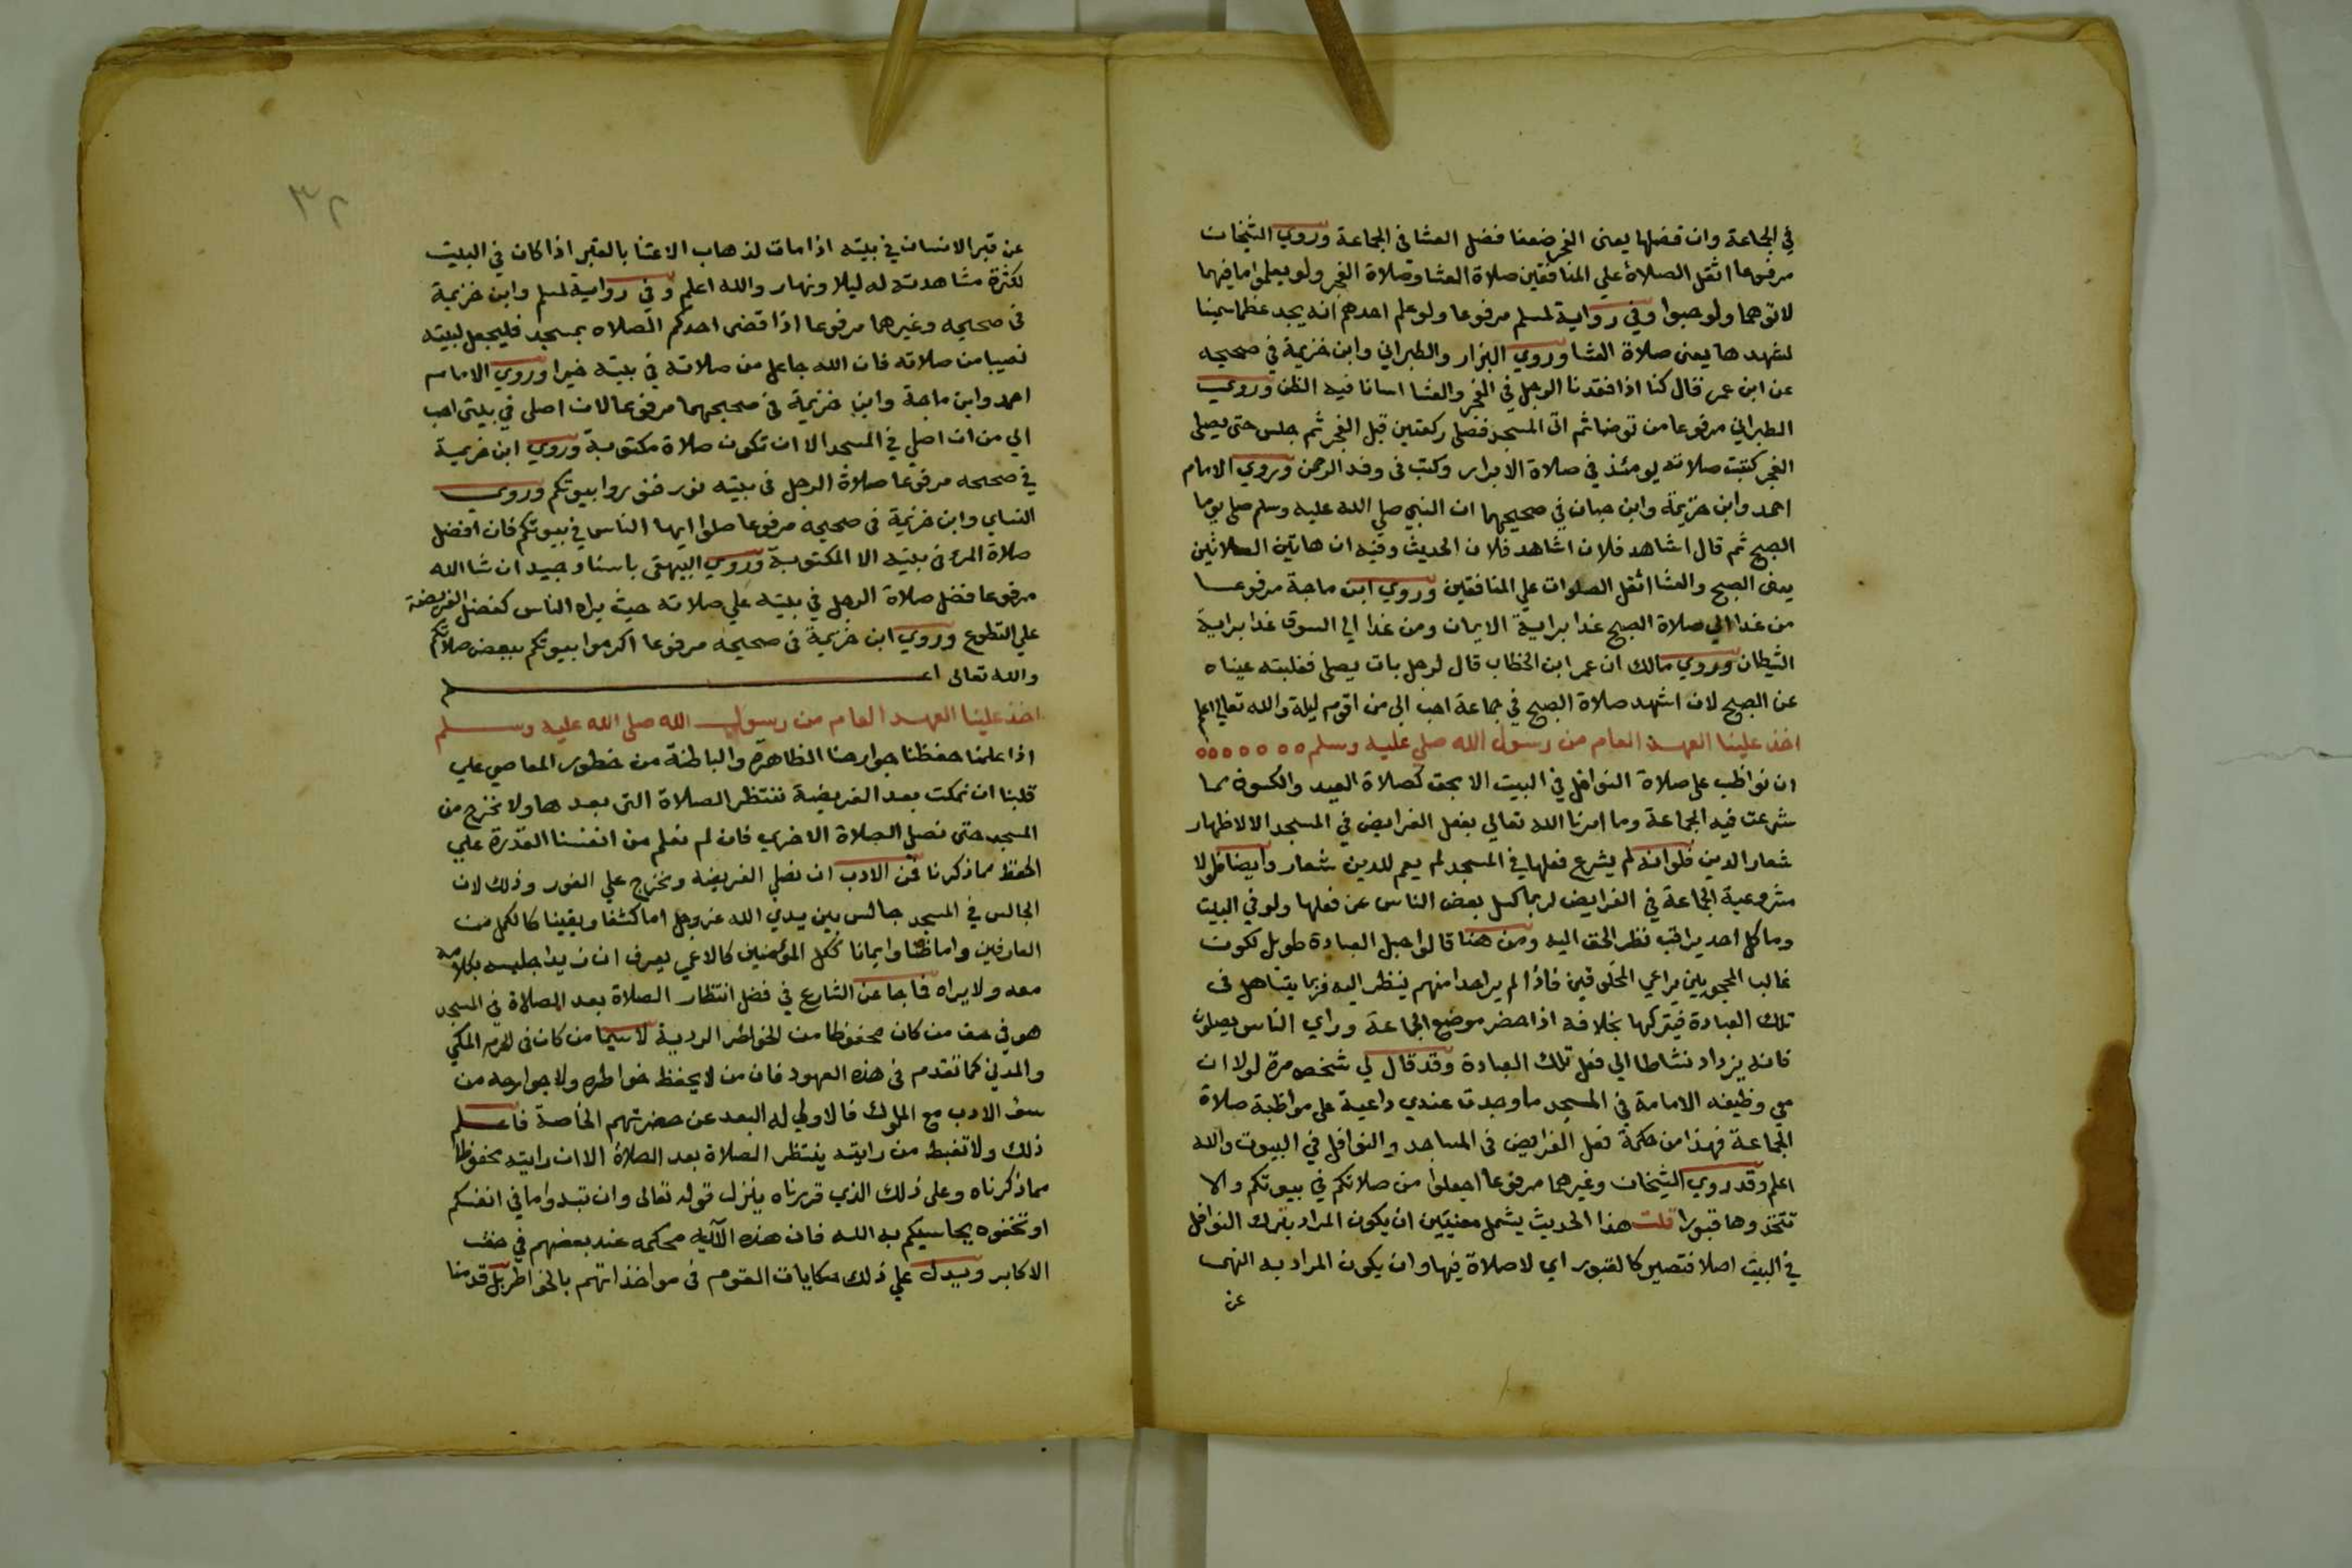 في الجماعة وان فضلها يعنى الفجر ضعفا فضل العشا فى الجماعة وروي الشيخان
مرفوعا اثقل الصلاة علي المنافقين صلاة العشا وصلاة الفجر ولو يعلموا ما فيهما
لاتوهما ولو حبوا وفي رواية لمسلم مرفوعا ولو علم احدهم انه يجد عظما سمينا
لشهدها يعنى صلاة العشا وروي البزار والطبراني وابن خزيمة في صحيحه
عن ابن عمر قال كنا اذا فقدنا الرجل في الفجر والعشا اسانا فيه الظن وروي
الطبراني مرفوعا من توضا ثم اتى المسجد فصلى ركعتين قبل الفجر ثم جلس حتى يصلى
الفجر كتبت صلاته يومئذ في صلاة الابرار وكتب فى وفد الرحمن وروي الامام
احمد وابن خزيمة وابن حبان في صحيحيهما ان النبي صلي الله عليه وسلم صلى يوما
الصبح ثم قال اشاهد فلان اشاهد فلان الحديث وفيه ان هاتين الصلاتين
يعنى الصبح والعشا اثقل الصلوات علي المنافقين وروي ابن ماجة مرفوعا
من غدا الي صلاة الصبح غدا براية الايمان ومن غدا الى السوق غدا براية
الشيطان وروي مالك ان عمر ابن الخطاب قال لرجل بات يصلى فغلبته عيناه
عن الصبح لان اشهد صلاة الصبح في جماعة احب الى من اقوم ليلة والله تعالي اعلم
اخذ علينا العهد العام من رسول الله صلي عليه وسلم
ان نواظب على صلاة النوافل في البيت الا بحق كصلاة العيد والكسوف مما
شرعت فيه الجماعة وما امرنا الله تعالي بفعل الفرايض في المسجد الا لاظهار
شعار الدين فلوانه لم يشرع فعلها في المسجد لم يعم للدين شعار وايضا فلولا
مشروعية الجماعة في الفرايض لربما كسل بعض الناس عن فعلها ولو في البيت
وما كل احد يراقب نظر الحق اليه ومن هنا قالوا حبل العبادة طويل لكون
غالب المحجوبين يراعي المخلوقين فاذا لم ير احدا منهم ينظر اليه فربما يتساهل فى
تلك العبادة فيتركها بخلافه اذا حضر موضع الجماعة وراي الناس يصلون
فانه يزداد نشاطا الي فعل تلك العبادة وقد قال لي شخص مرة لولا ان
معي وظيفه الامامة في المسجد ما وجدت عندي داعية على مواظبة صلاة
الجماعة فهذا من حكمة فعل الفرايض فى المساجد والنوافل في البيوت والله
اعلم وقد روي الشيخان وغيرهما مرفوعا اجعلوا من صلاتكم في بيوتكم ولا
تتخذوها قبورا قلت هذا الحديث يشمل معنيين ان يكون المراد بترك النوافل
في البيت اصلا فتصير كالقبور اي لا صلاة فيها وان يكون المراد به النهى
عن
٣٢
عن قبر الانسان في بيته اذا مات لذهاب الاعتنا بالقبر اذا كان في البيت
لكثرة مشاهدته له ليلا ونهار والله اعلم وفي رواية لمسلم وابن خزيمة
فى صحيحه وغيرهما مرفوعا اذا قضى احدكم الصلاه بمسجد فليجعل لبيته
نصيبا من صلاته فان الله جاعل من صلاته في بيته خيرا وروي الامام
احمد وابن ماجة وابن خزيمة في صحيحهما مرفوعا لان اصلى في بيتى احب
الي من ان اصلي في المسجد الا ان تكون صلاة مكتوبة وروي ابن خزيمة
في صحيحه مرفوعا صلاة الرجل فى بيته نور فنوروا بيوتكم وروي
النساي وابن خزيمة فى صحيحه مرفوعا صلوا ايها الناس في بيوتكم فان افضل
صلاة المرئ فى بيته الا المكتوبة وروي البيهقى باسناد جيد ان شا الله
مرفوعا فضل صلاة الرجل في بيته علي صلاته حيث يراه الناس كفضل الفريضة
علي التطوع وروي ابن خزيمة فى صحيحه مرفوعا اكرموا بيوتكم ببعض صلاتكم
والله تعالى اعلم
اخذ علينا العهد العام من رسول الله صلى الله عليه وسلم
اذا علمنا حفظنا جوارحنا الظاهرة والباطنة من خطور المعاصي علي
قلبنا ان نمكث بعد الفريضة ننتظر الصلاة التى بعدها ولا نخرج من
المسجد حتى نصلي الصلاة الاخري فان لم نعلم من انفسنا القدرة علي
الحفظ مما ذكرنا فمن الادب ان نصلي الفريضة ونخرج علي الفور وذلك لان
الجالس في المسجد جالس بين يدي الله عز وجل اما كشفا ويقينا كالكمل من
العارفين واما ظنا وايمانا ككل المؤمنين كالاعمي يعرف ان زيدا جليسه بكلامه
معه ولا يراه فما جا عن الشارع في فضل انتظار الصلاة بعد الصلاة في المسجد
هو في حق من كان محفوظا من الخواطر الردية لاسيما من كان فى الحرم المكي
والمدني كما تقدم فى هذه العهود فان من لا يحفظ خواطره ولا جوارحه من
سؤ الادب مع الملوك فالاولي له البعد عن حضرتهم الخاصة فاعلم
ذلك ولا تغبط من رايته ينتظر الصلاة بعد الصلاة الا ان رايته محفوظا
مما ذكرناه وعلى ذلك الذي قررناه ينزل قوله تعالى وان تبدوا ما في انفسكم
او تخفوه يحاسبكم به الله فان هذه الآية محكمه عند بعضهم في حق
الاكابر ويدل علي ذلك حكايات القوم فى مواخذاتهم بالخواطر بل قدمنا